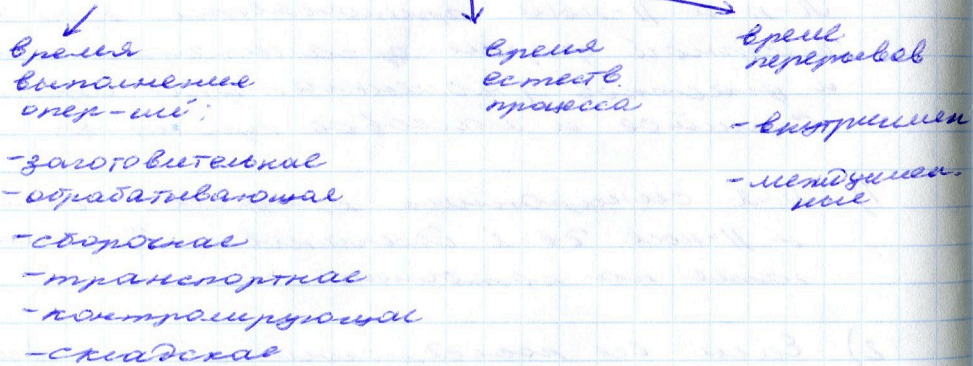 время
выполнения
опер-ций:
- заготовительная
- обрабатывающая
- сборочная
- транспортная
- контролирующая
- складская
время
естеств.
процесса
время
перерывов
- внутрисмен
- междусмен-
ные